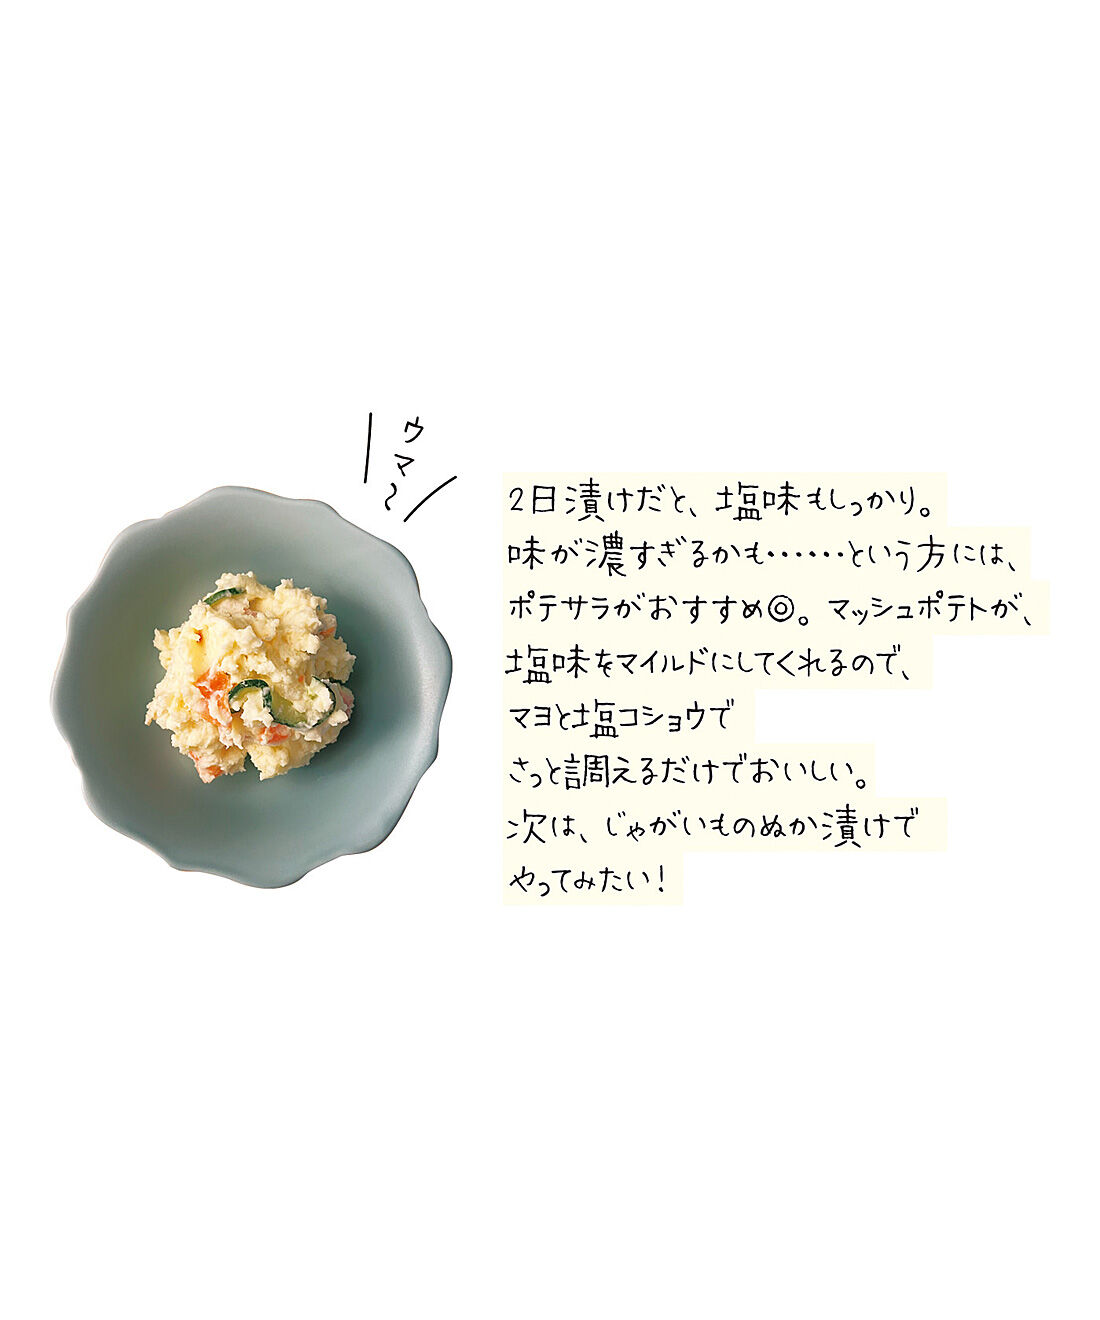 ウマ〜
2日漬けだと、塩味もしっかり。
味が濃すぎるかも……という方には、
ポテサラがおすすめ◎。マッシュポテトが、
塩味をマイルドにしてくれるので、
マヨと塩コショウで
さっと調えるだけでおいしい。
次は、じゃがいものぬか漬けで
やってみたい！